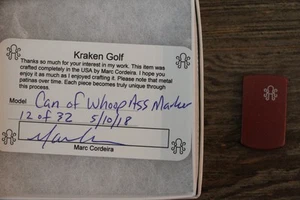 Kraken Golf
Thanks so much for your interest in my work. This item was
crafted completely in the USA by Marc Cordeira. I hope you
enjoy it as much as I enjoyed crafting it. Please note that metal
patinas over time. Each piece becomes truly unique through
this process.
Model Can of WhoopAss Marker
12 of 32 5/10/18
Marc Cordeira